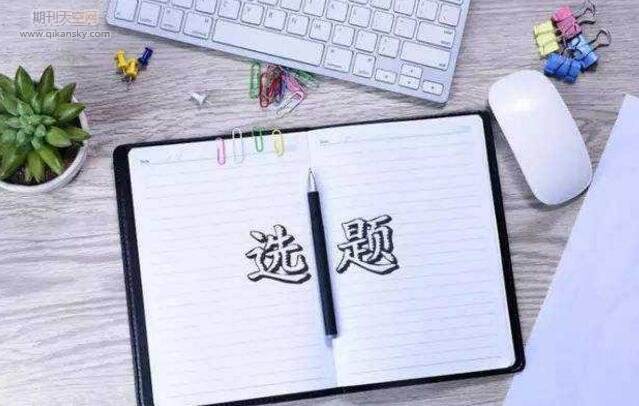 期刊天空网
www.qikansky.com
选题